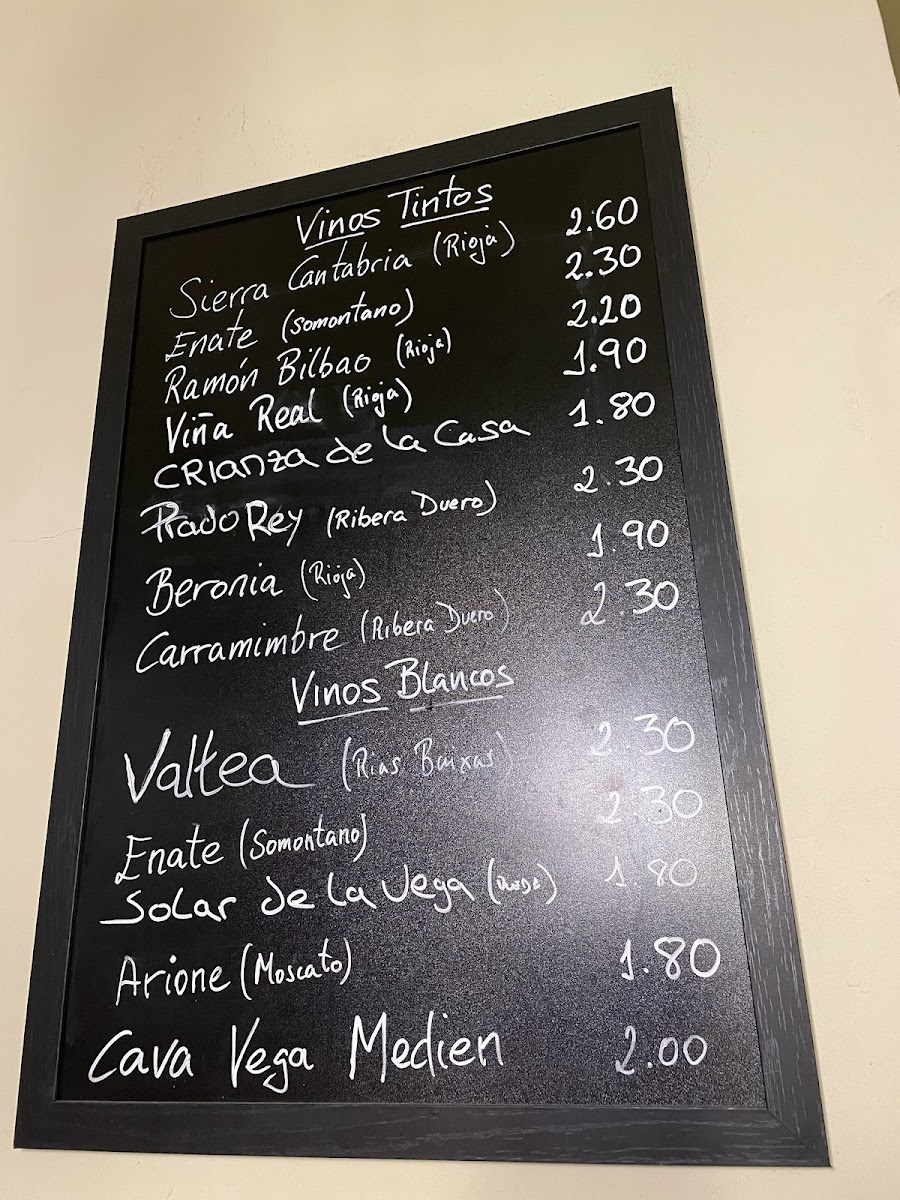 Vinos Tintos
Sierra Cantabria (Rioja) 2.60
Enate (Somontano) 2.30
Ramón Bilbao (Rioja) 2.20
Viña Real (Rioja) 1.90
CRIANZA de La Casa 1.80
Prado Rey (Ribera Duero) 2.30
Beronia (Rioja) 1.90
Carramimbre (Ribera Duero) 2.30
Vinos Blancos
Valtea (Rias Baixas) 2.30
Enate (Somontano) 2.30
Solar de la Vega 1.80
Arione (Moscato) 1.80
Cava Vega Medien 2.00